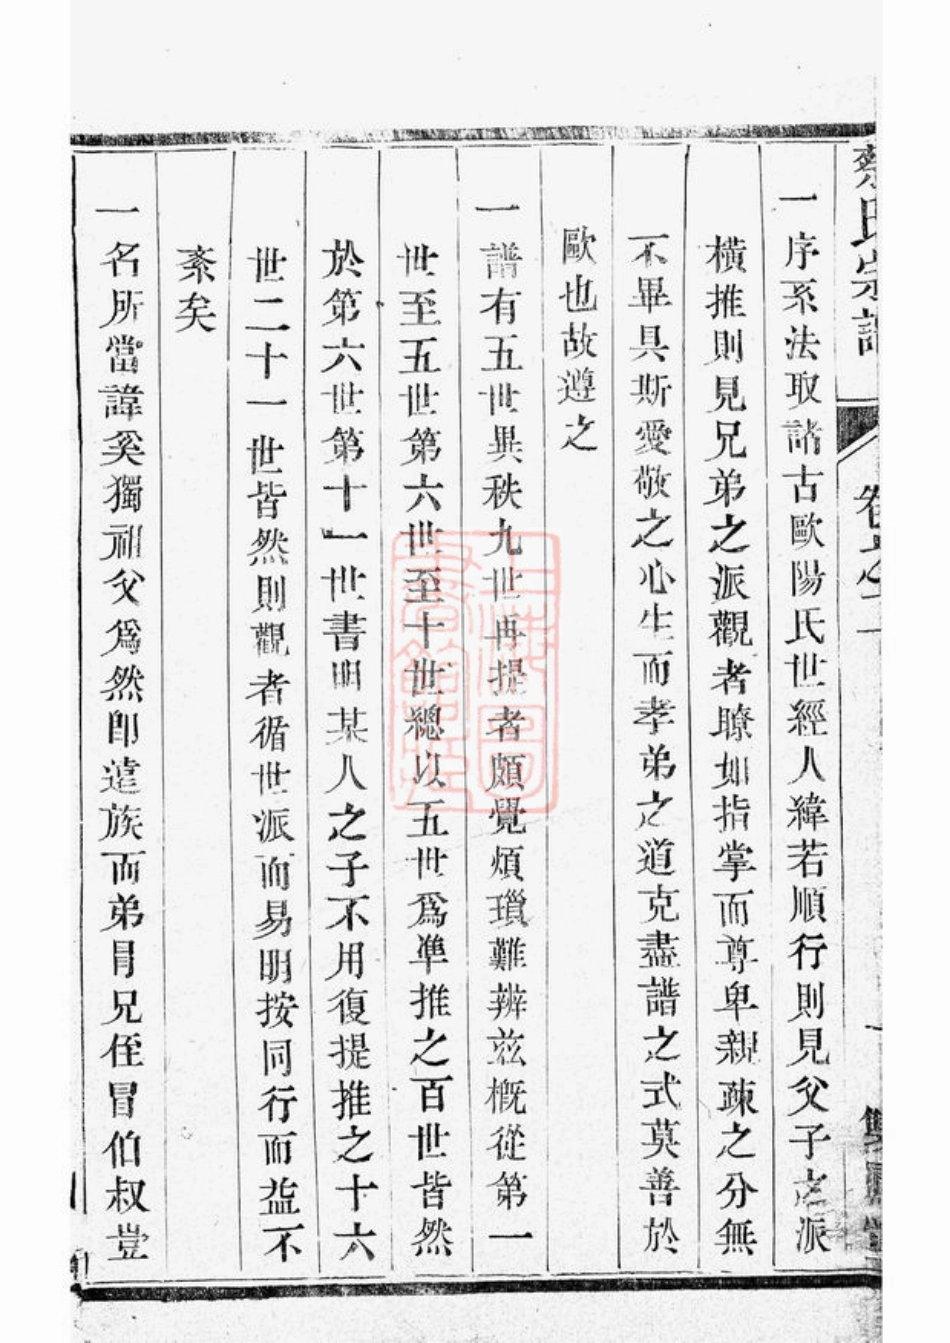 蔡氏宗譜
卷之一
一序系法取諸古歐陽氏世經人緯若順行則見父子之派
橫推則見兄弟之派觀者瞭如指掌而尊卑親疎之分無
不畢具斯愛敬之心生而孝弟之道克盡譜之式莫善於
歐也故遵之
一譜有五世異秩九世再提者頗覺煩瑣難辨兹槪從第一
世至五世第六世至十世總以五世爲準推之百世皆然
於第六世第十一世書明某人之子不用復提推之十六
世二十一世皆然則觀者循世派而易明按同行而益不
紊矣
一名所當諱奚獨祖父爲然卽遠族而弟冐兄侄冒伯叔豈
上海圖
書館藏